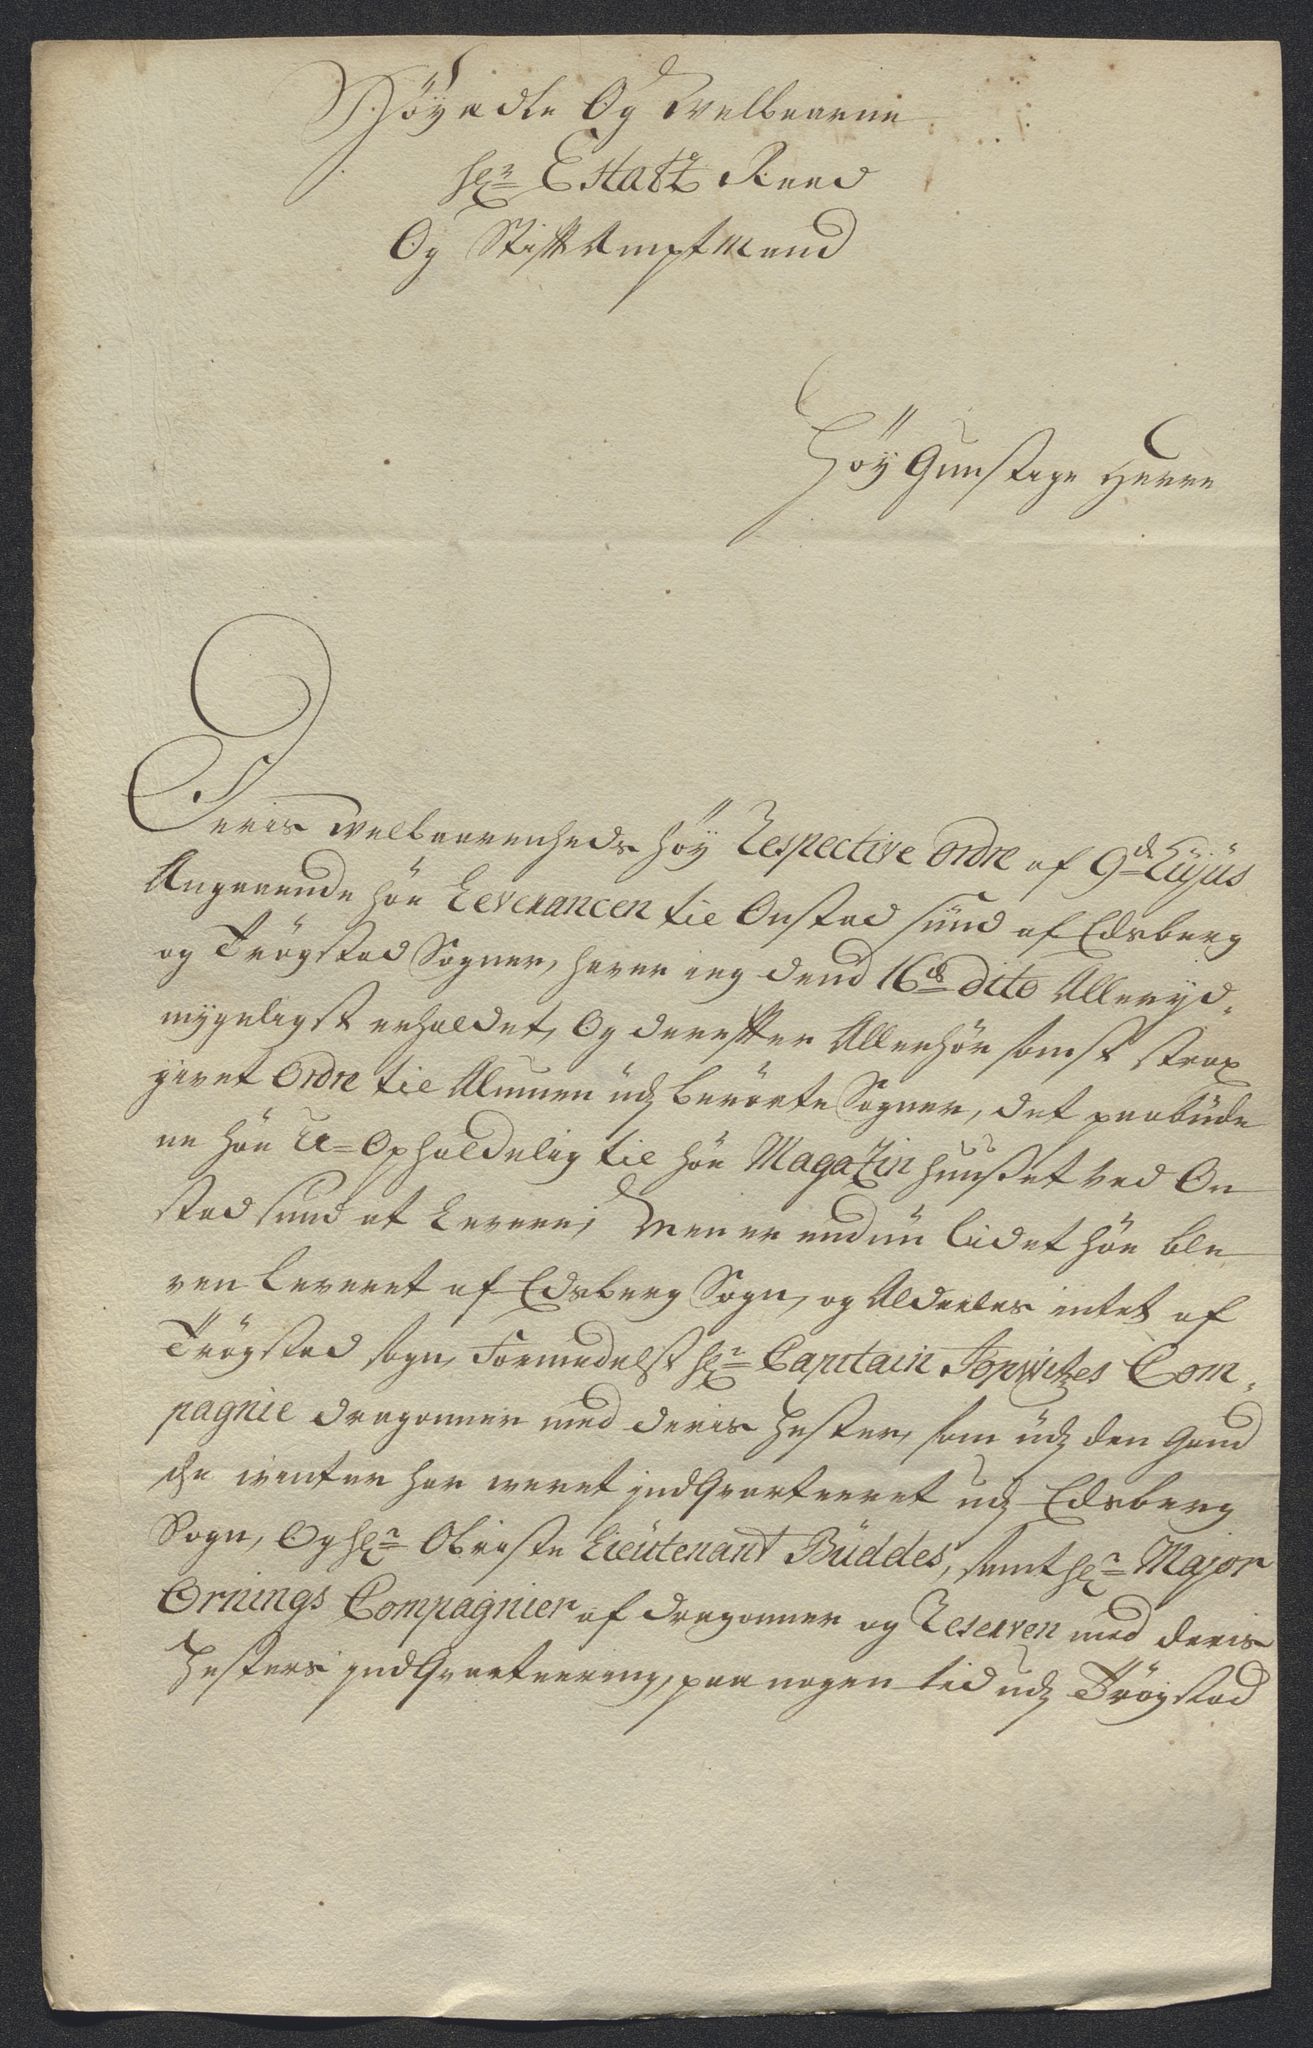 Høyædle Og Welbaarne
Hr: Estatz Raad
Og StifftAmptMand
Høy Gunstige Herre
Deris Welbaarenheds Høy Respective Ordre af 9de Hujus
Angaaende Høe Leverancen til Onstad Sund af Edsberg
og Trøgstad Sogner, haver ieg dend 16de Dito Allerÿd-
mygeligst erholdet, Og derefter Allerhøesamst strax
givet Ordre til Almuen udj berørte Sogner, det paabudne
Høe U-Opholdelig til Høe Magazin Huuset ved On
stad Sund at Levere; Men er endnu lidet Høe ble
ven leveret af Edsberg Sogn, og Aldeeles intet af
Trøgstad Sogn, Formedelst Hr: Capitain Topwitzes Com-
pagnie dragonner med deris Hester, som udj den gand
sche winter har weret jndqvarteeret udj Edsberg
Sogn, Og Hr: Obriste Lieutenant Büddes, samt Hr: Major
Ornings Compagnier af dragonner og Reserven med deris
Hesters jndqvarteering, paa nogen tid udj Trøgstad